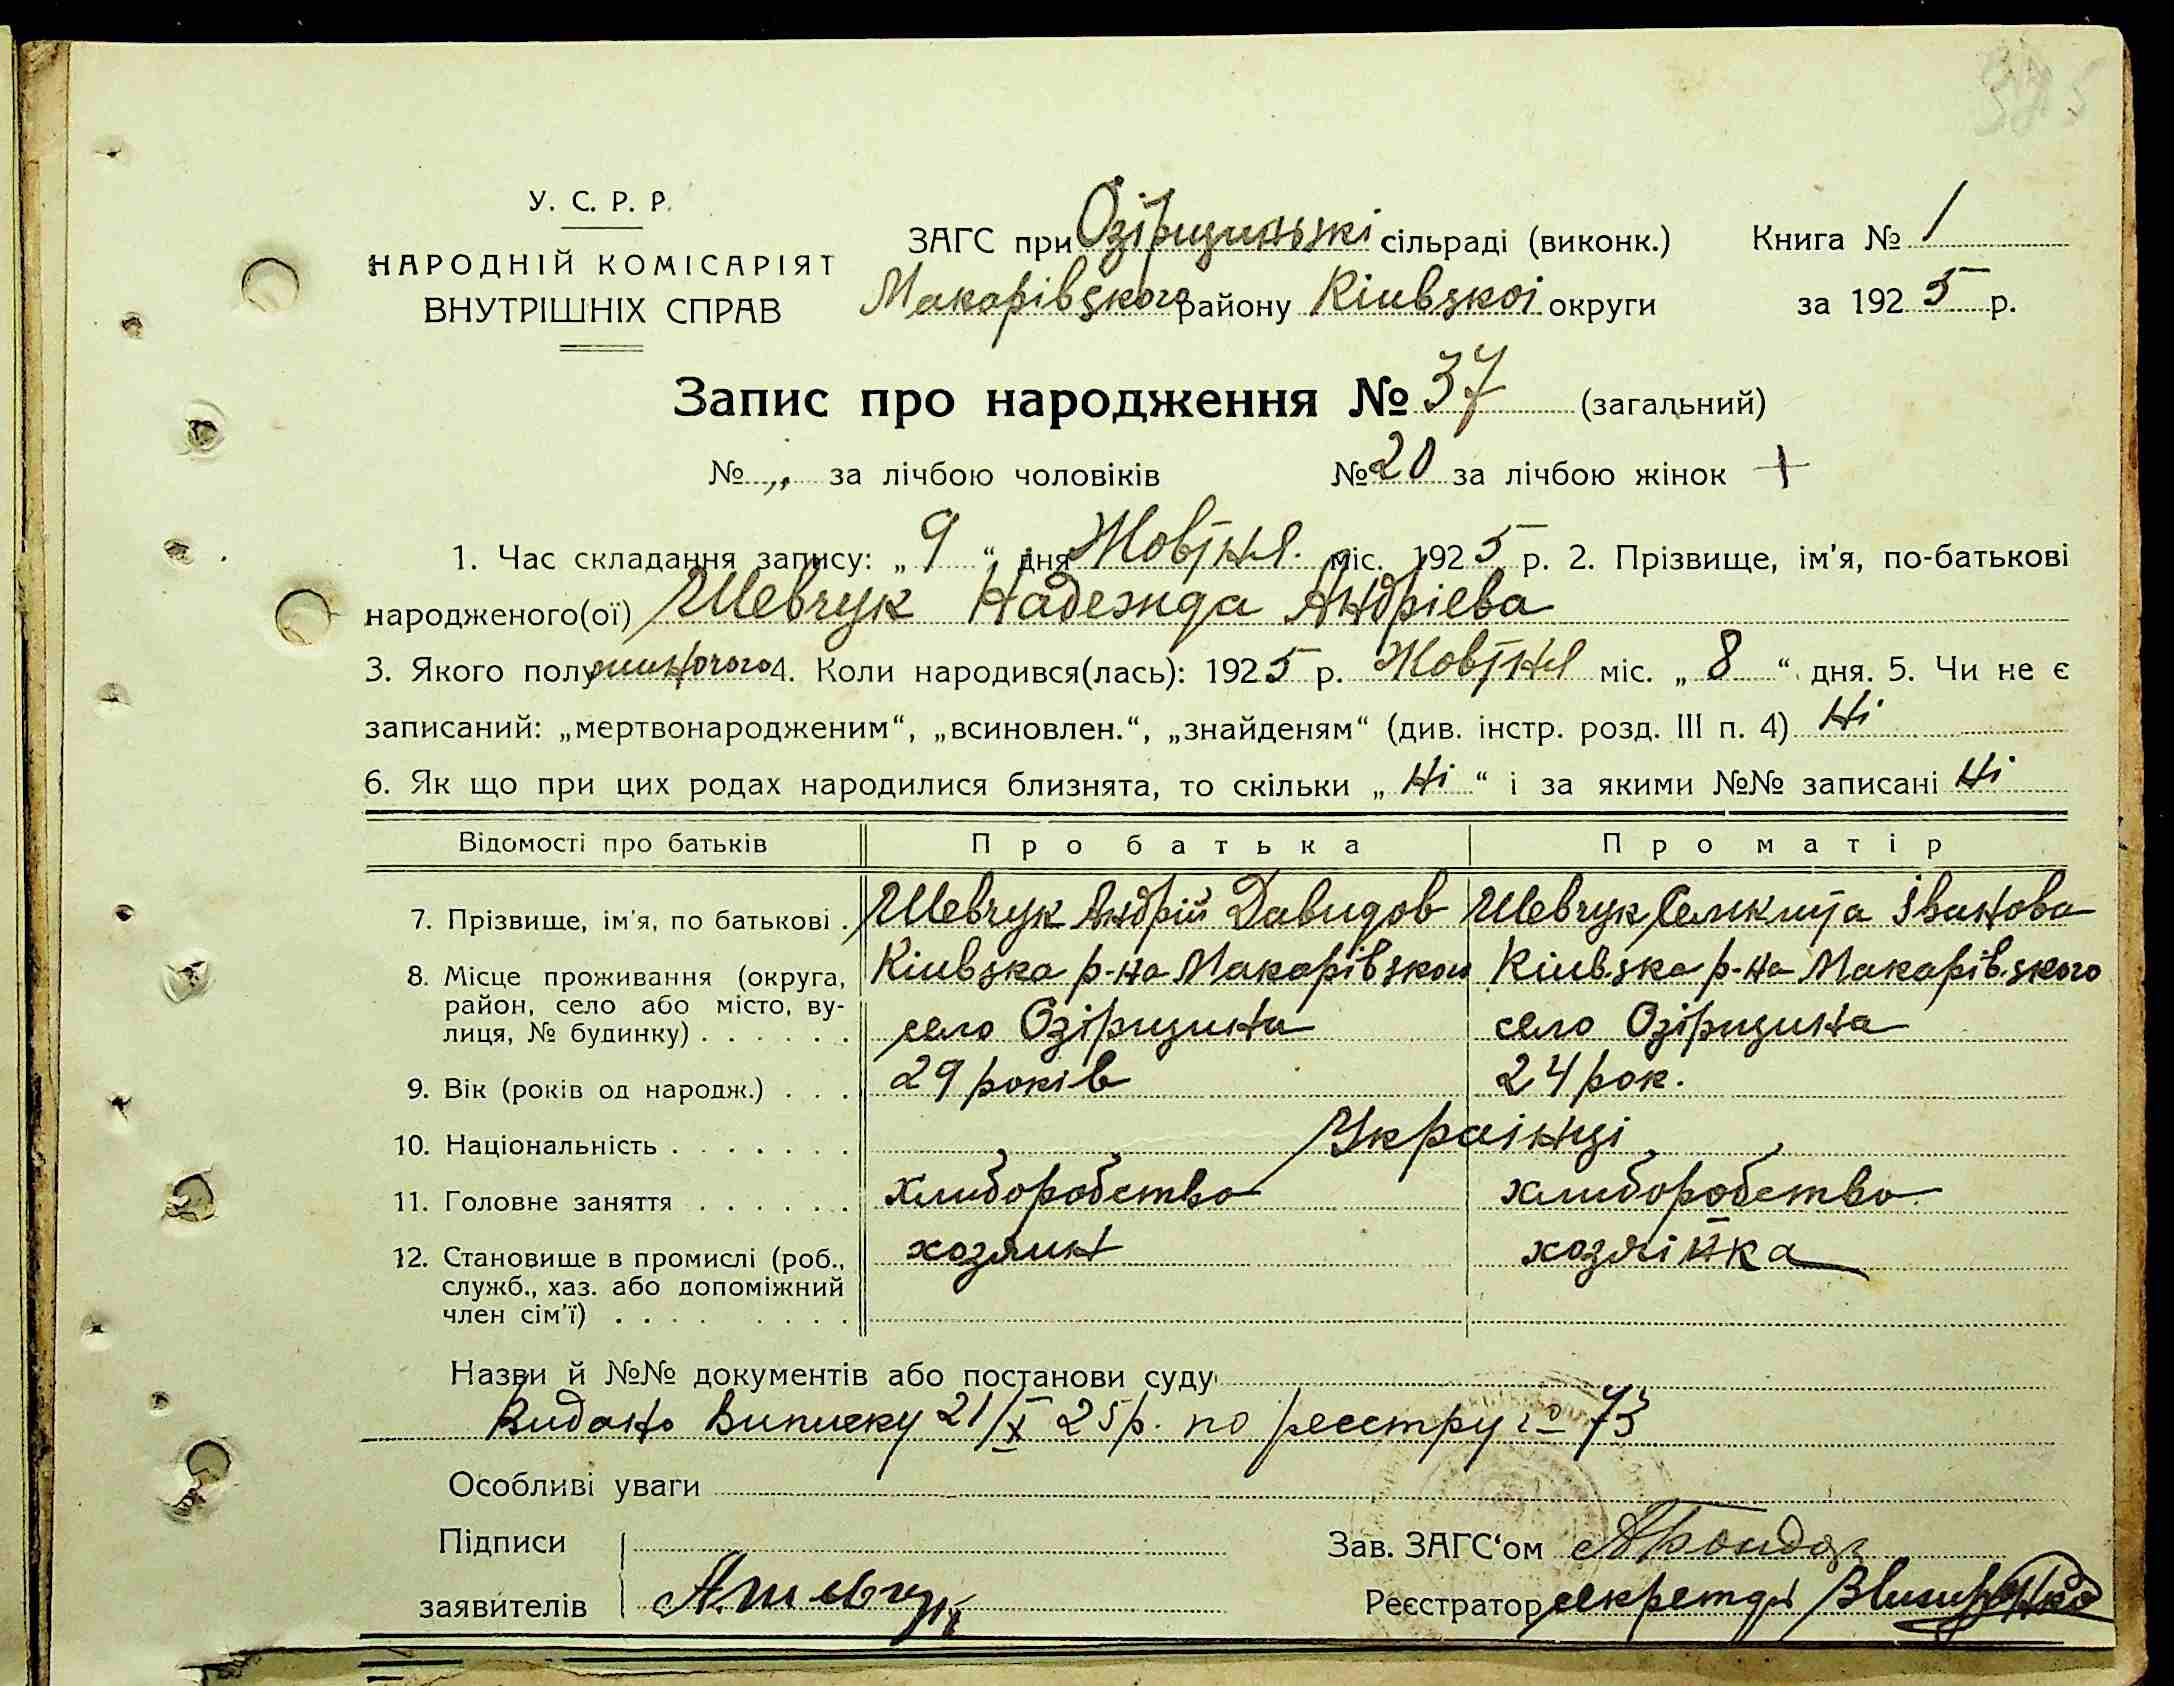 У. С. Р. Р.
НАРОДНІЙ КОМІСАРІЯТ
ВНУТРІШНІХ СПРАВ
ЗАГС при Озірщинські сільраді (виконк.) Книга № 1
Макарівського району Київської округи за 1925 р.
Запис про народження № 37 (загальний)
№ „ за лічбою чоловіків № 20 за лічбою жінок +
1. Час складання запису: „ 9 “ дня Жовтня міс. 1925 р. 2. Прізвище, ім’я, по-батькові
народженого(ої) Шевчук Надежда Андрієва
3. Якого полу жиночого 4. Коли народився(лась): 1925 р. Жовтня міс. „ 8 “ дня. 5. Чи не є
записаний: „мертвонародженим“, „всиновлен.“, „знайденям“ (див. інстр. розд. III п. 4) Ні
6. Як що при цих родах народилися близнята, то скільки „ Ні “ і за якими №№ записані Ні
Відомості про батьків Про батька Про матір
7. Прізвище, ім’я, по батькові . Шевчук Андрій Давидов Шевчук Іванова
8. Місце проживання (округа, Киівска р-на Макарівского Киівска р-на Макарівского
район, село або місто, ву-
лиця, № будинку) . . . . . . село Озірщина село Озірщина
9. Вік (років од народж.) . . . 29 років 24 рок.
10. Національність . . . . . . . Украінці
11. Головне заняття . . . . . . хлиборобство хлиборобство
12. Становище в промислі (роб., хозяин хозяійка
служб., хаз. або допоміжний
член сім’ї) . . . . . . . .
Назви й №№ документів або постанови суду
Видано Виписку 21/X 25р. по реєстру № 73
Особливі уваги
Підписи Зав. ЗАГС‘ом АБондар
заявителів А.Шевчук Реєстратор секретарь